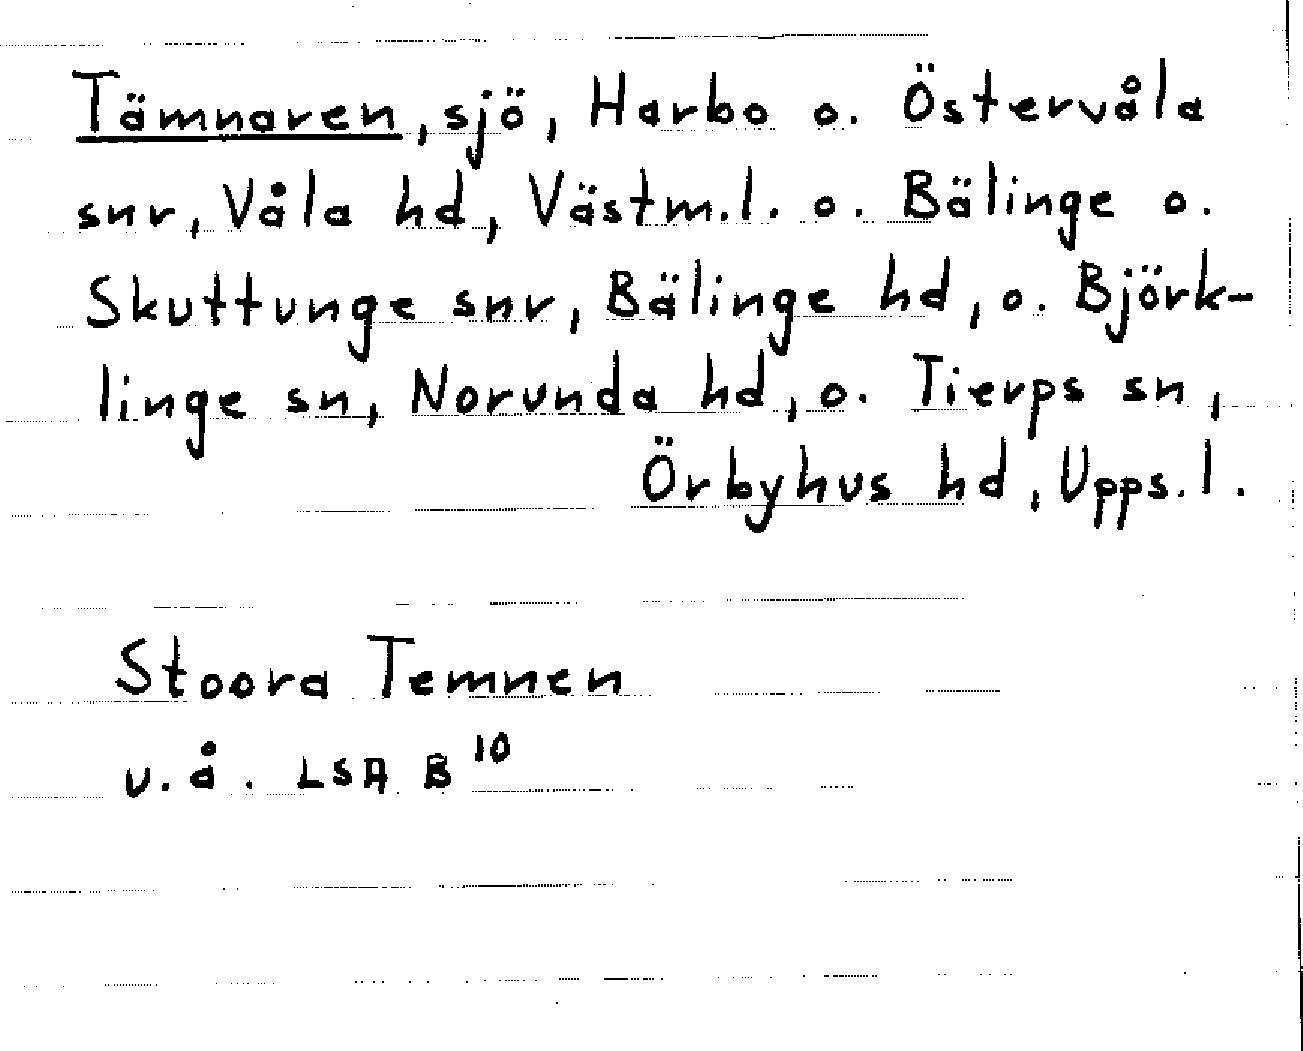 Tämnaren, sjö, Harbo o. Östervåla
snr, Våla hd, Västm.l. o. Bälinge o.
Skuttunge snr, Bälinge hd, o. Björk-
linge sn, Norunda hd, o. Tierps sn,
Örbyhus hd, Upps.l.
Stoora Temnen
u.å. LSA B 10